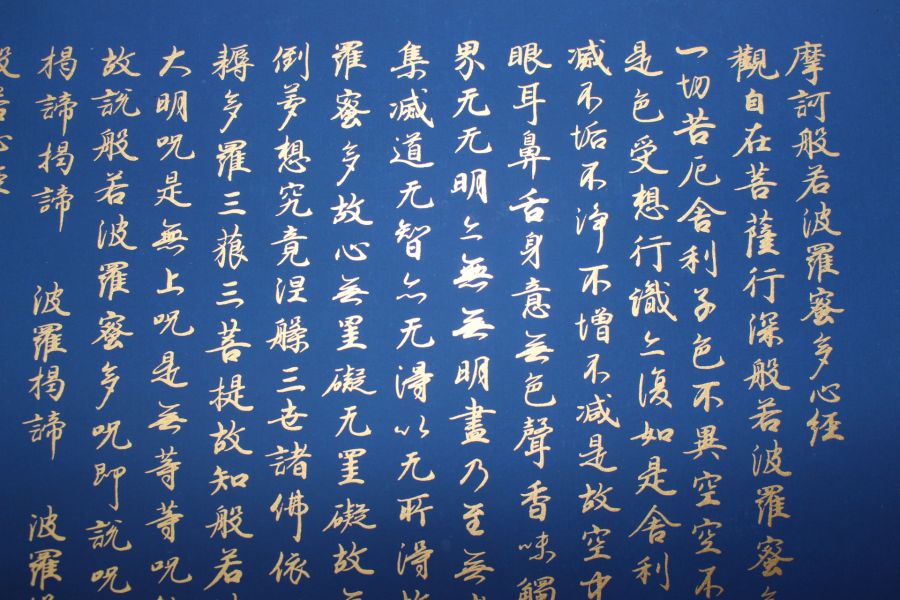 摩訶般若波羅蜜多心经
觀自在菩薩行深般若波羅蜜多
一切苦厄舍利子色不異空空不
是色受想行識亦復如是舍利
滅不垢不淨不增不减是故空中
眼耳鼻舌身意無色聲香味觸
界无无明亦無無明盡乃至無
集滅道无智亦无得以无所得故
羅蜜多故心無罣礙无罣礙故
倒夢想究竟涅槃三世諸佛依
耨多羅三藐三菩提故知般若
大明呪是無上呪是無等等呪
故說般若波羅蜜多呪即說呪
揭諦揭諦 波羅揭諦 波羅
般若心